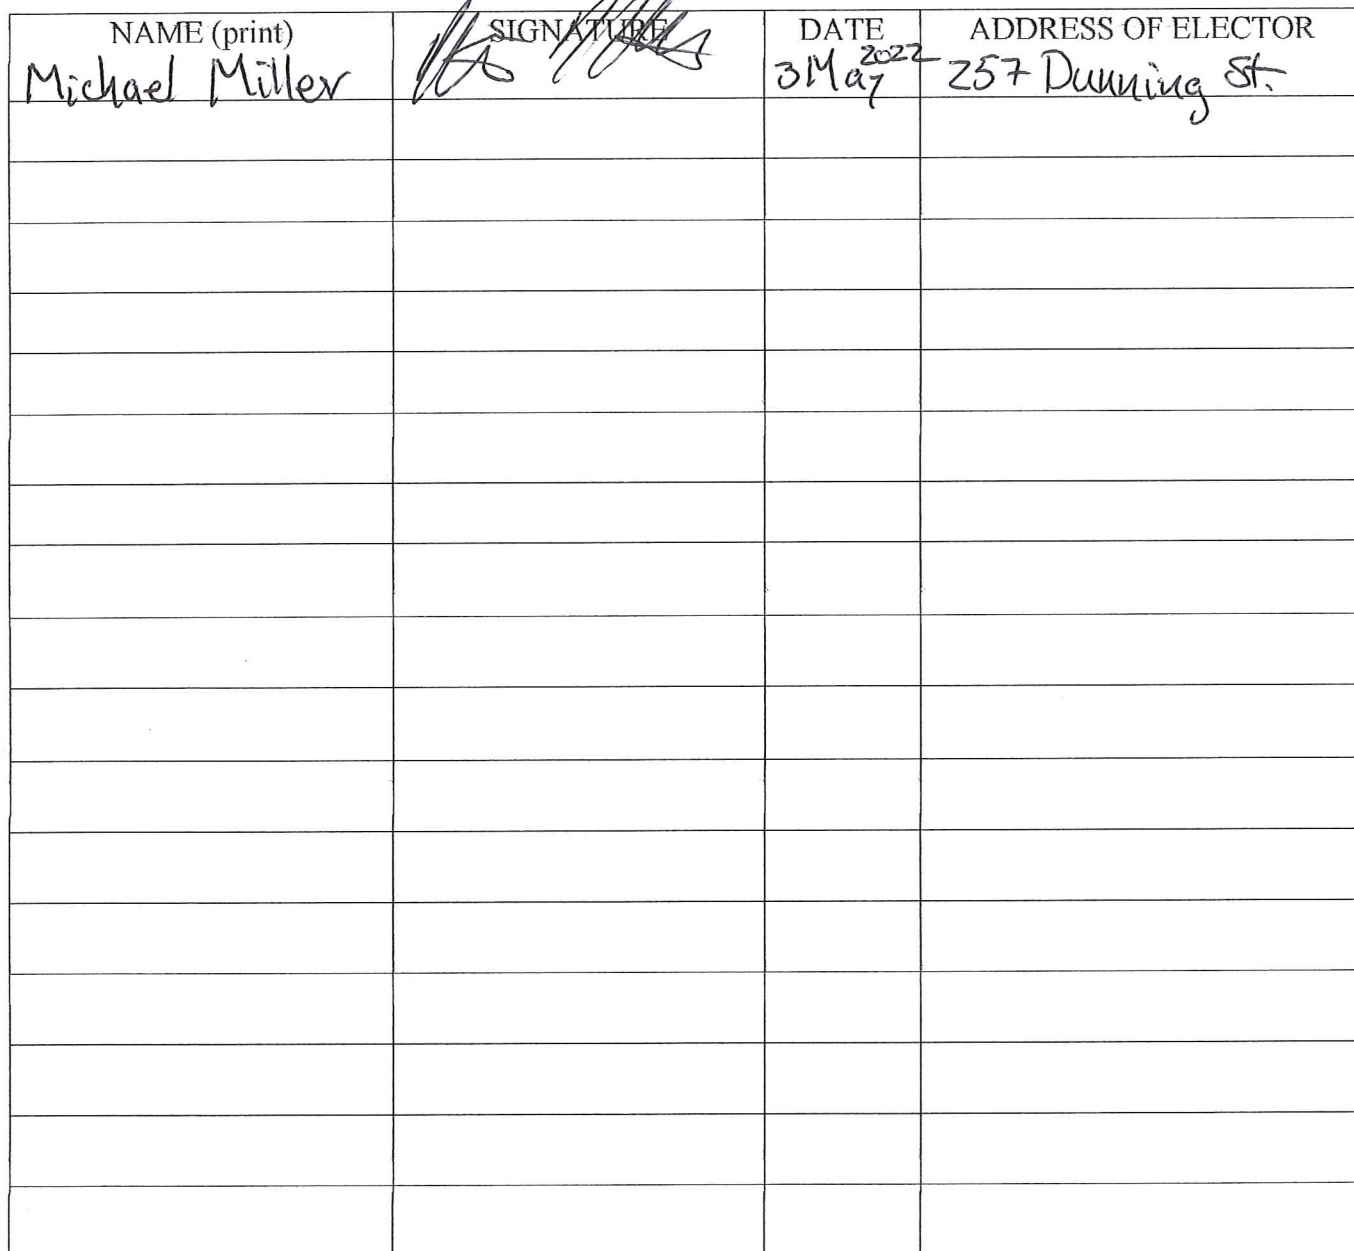 NAME (print) SIGNATURE DATE ADDRESS OF ELECTOR
Michael Miller 3 May 2022 257 Dunning St.